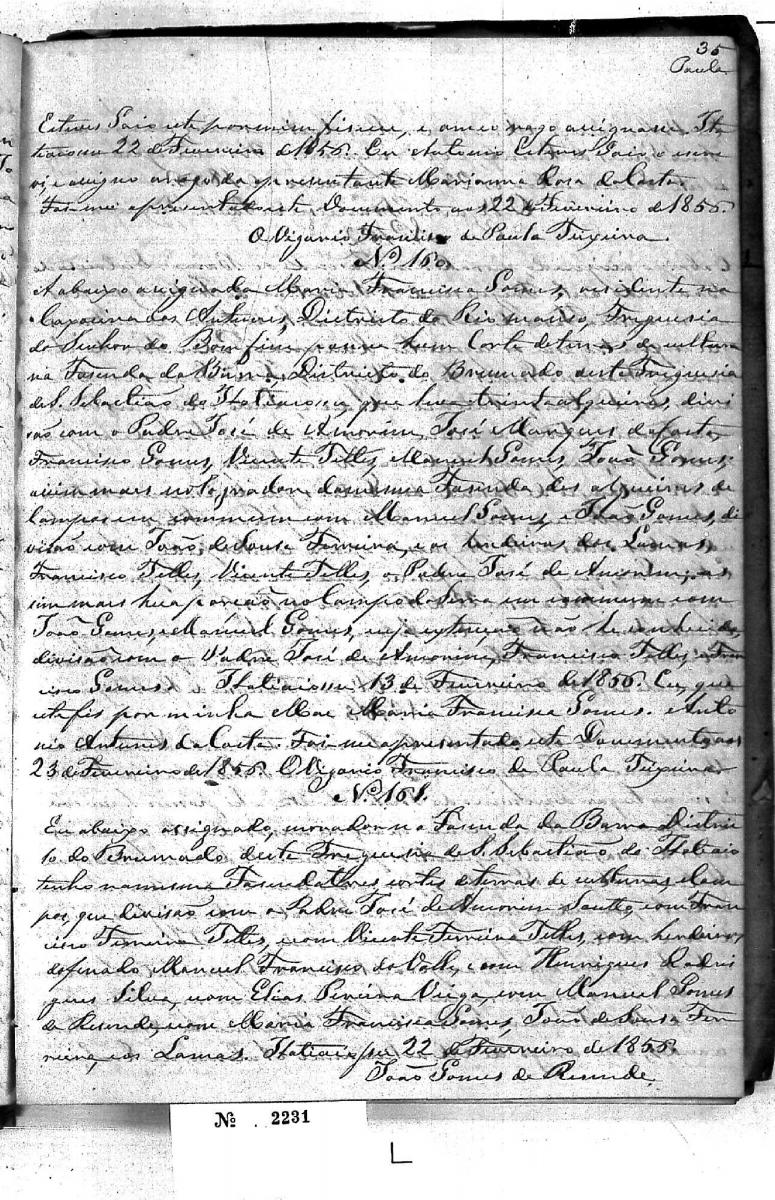 35
Paula
Esteves Gaio este por mim fisesse, e a meu rogo assignasse. Ita
tiaiossu 22 de Fevereiro de 1856. Eu Antonio Esteves Gaio o escre
vi, e assigno a rogo da apresentante Marianna Rosa da Costa.
Foi-me apresentado este Documento aos 22 de Fevereiro de 1856.
O Vigario Francisco de Paula Teixeira.
Nº 160.
A abaixo assignada Maria Francisca Gomes, residente na
Capoeira dos Antunes, Districto do Rio manso, Freguesia
do Senhor do Bom fim possue hum Corte de terras de cultura
na Fasenda da Barra, Districto do Brumado desta Freguesia
de S. Sebastião do Itatiaiossu, que leva trinta alqueires, divi
são com o Padre José de Amorim, José Marques da Costa,
Francisco Gomes, Vicente Telles, Manuel Gomes, João Gomes;
assim mais no logrador da mesma Fasenda dos alqueires de
campos em commum com Manuel Gomes, e João Gomes, di
visão com João de Sousa Ferreira, e os herdeiros dos Lamas,
Francisco Telles, Vicente Telles, o Padre José de Amorim; as
sim mais hua porção no Campo da Serra em commum com
João Gomes, e Manuel Gomes, cuja extenção não he conhecida,
divisão com o Padre José de Amorim, Francisco Telles e Fran
cisco Gomes. Itatiaiossu 13 de Fevereiro de 1856. Eu, que
este fis por minha Mae Maria Francisca Gomes. Anto
nio Antunes da Costa. Foi-me apresentado este Documento aos
23 de Fevereiro de 1856. O Vigario Francisco de Paula Teixeira
Nº 161.
Eu abaixo assignado, morador na Fasenda da Barra Distric
to do Brumado desta Freguesia de S. Sebastião do Itatiaio
tenho na mesma Fasenda tres cortes de terras de culturas, e cam
pos que divisão com o Padre José de Amorim Soutto, com Fran
cisco Ferreira Telles, e com Vicente Ferreira Telles, com herdeiros
do finado Manuel Francisco do Valle, e com Henriques Rodri
gues Silva, e com Elias Pereira Veiga, com Manuel Gomes
de Resende, e com Maria Francisca Gomes, João de Sousa Fer
reira, e os Lamas. Itatiaiossu 22 de Fevereiro de 1856.
João Gomes de Resende.
Nº 2231
L